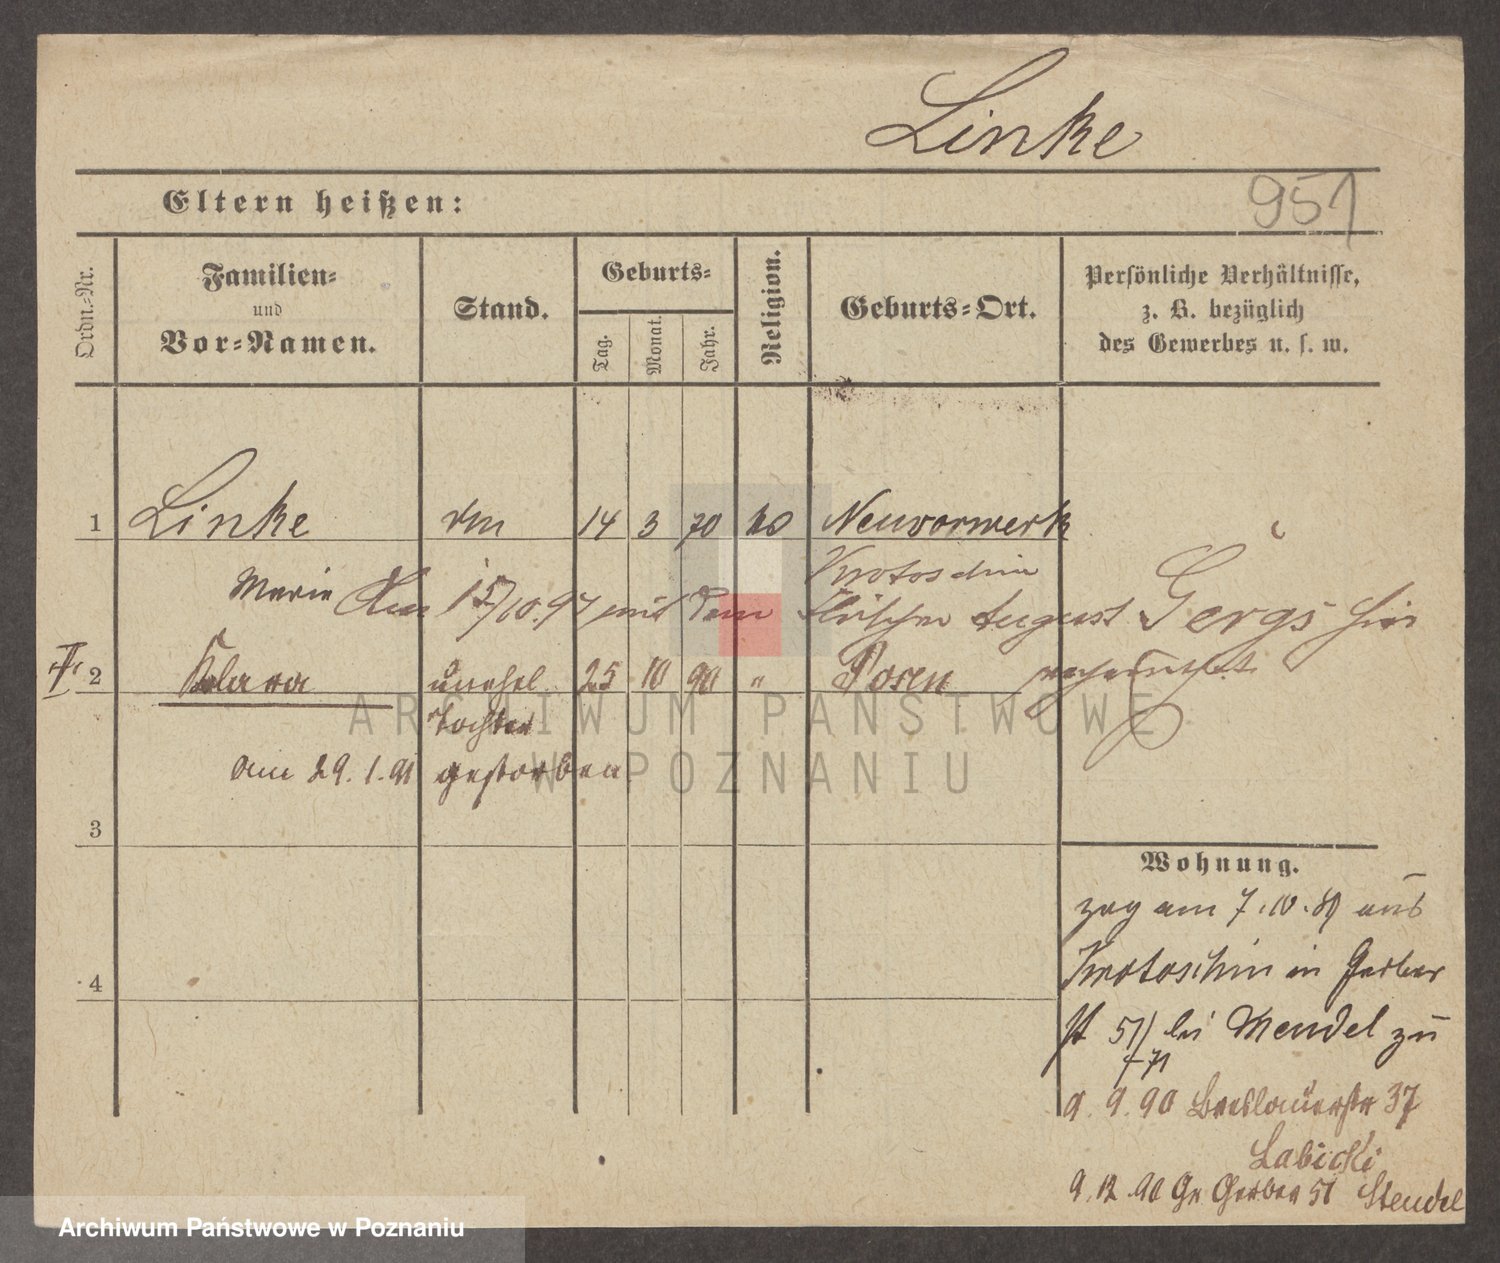 Linke
951
Eltern heißen:
Ordn.-Nr.
Familien-
und
Vor-Namen.
Stand.
Geburts-
Tag.
Monat.
Jahr.
Religion.
Geburts-Ort.
Persönliche Verhältnisse,
z. B. bezüglich
des Gewerbes u. s. w.
1 Linke 14 3 70 Neuvorwerk
Krotoschin
Marie
Am 15/10.97 mit dem Fleischer August Gergs hier
verheirathet
II 2 Klara unehel. 25 10 90 " Posen
Tochter
am 29.1.91 gestorben
3
4
Wohnung.
zog am 7.10.89 aus
Krotoschin in Gerber
st 51 bei Mendel zu
9.9.90 Breslauerstr 37
Labicki
9.12.90 Gr Gerber 51
ARCHIWUM PAŃSTWOWE
W POZNANIU
Archiwum Państwowe w Poznaniu